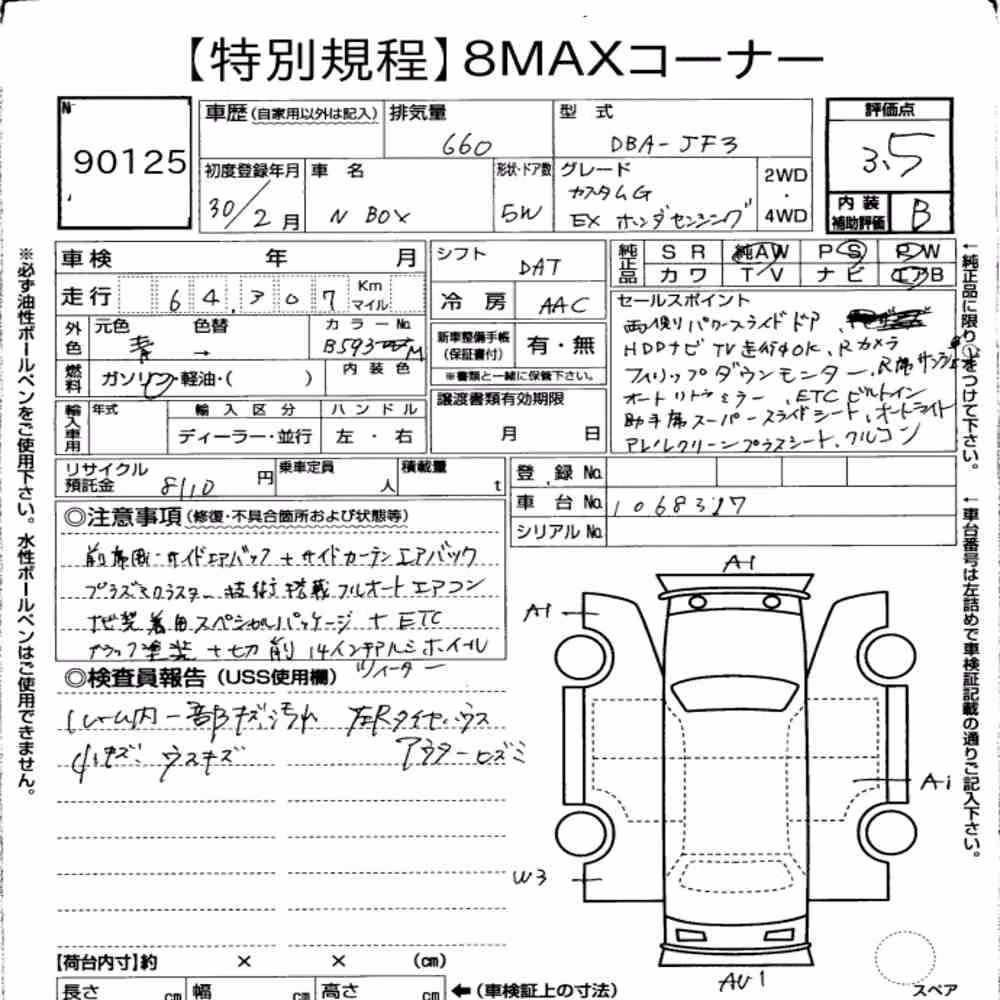 【特別規程】8MAXコーナー
No
90125
車歴(自家用以外は記入)
排気量
660
型 式
DBA-JF3
評価点
3.5
初度登録年月
30/2月
車 名
N BOX
形状・ドア数
5W
グレード
カスタムG
EX ホンダセンシング
2WD
・
4WD
内装
補助評価
B
車検 年 月
シフト
DAT
純正品
SR 純AW PS PW
カワ TV ナビ エアB
走行 64,307 Km マイル
冷房 AAC
セールスポイント
両側パワースライドドア、
HDDナビ TV走行OK、Rカメラ
フィリップダウンモニター、R席サンシェード
オートリトラミラー、ETCビルトイン
助手席スーパースライドシート、オートライト
アレルクリーンプラスシート、クルコン
外色
元色 色替
青 →
カラーNo.
B593M
新車整備手帳
(保証書付)
有・無
※書類と一緒に保管下さい。
燃料
ガソリン・軽油・( )
内装色
譲渡書類有効期限
月 日
輸入車用
年式
輸入区分
ハンドル
ディーラー・並行
左・右
リサイクル
預託金
8110円
乗車定員
人
積載量
t
登録No.
車台No. 1068317
シリアルNo.
◎注意事項(修復・不具合箇所および状態等)
前席用i-サイドエアバッグ+サイドカーテンエアバック
プラズマクラスター技術搭載フルオートエアコン
ナビ装着用スペシャルパッケージ+ETC
ブラック塗装+切削14インチアルミホイール
ツィーター
◎検査員報告(USS使用欄)
ルーム内一部キズ汚れ 左Rタイヤハウス
小キズ ウスキズ アウターヒズミ
A1
A1
A1
W3
AU1
スペア
【荷台内寸】約 × × (cm)
長さ cm 幅 cm 高さ cm ←(車検証上の寸法)
※必ず油性ボールペンをご使用下さい。水性ボールペンはご使用できません。
←純正品に限り○をつけて下さい。
←車台番号は左詰めで車検証記載の通りご記入下さい。